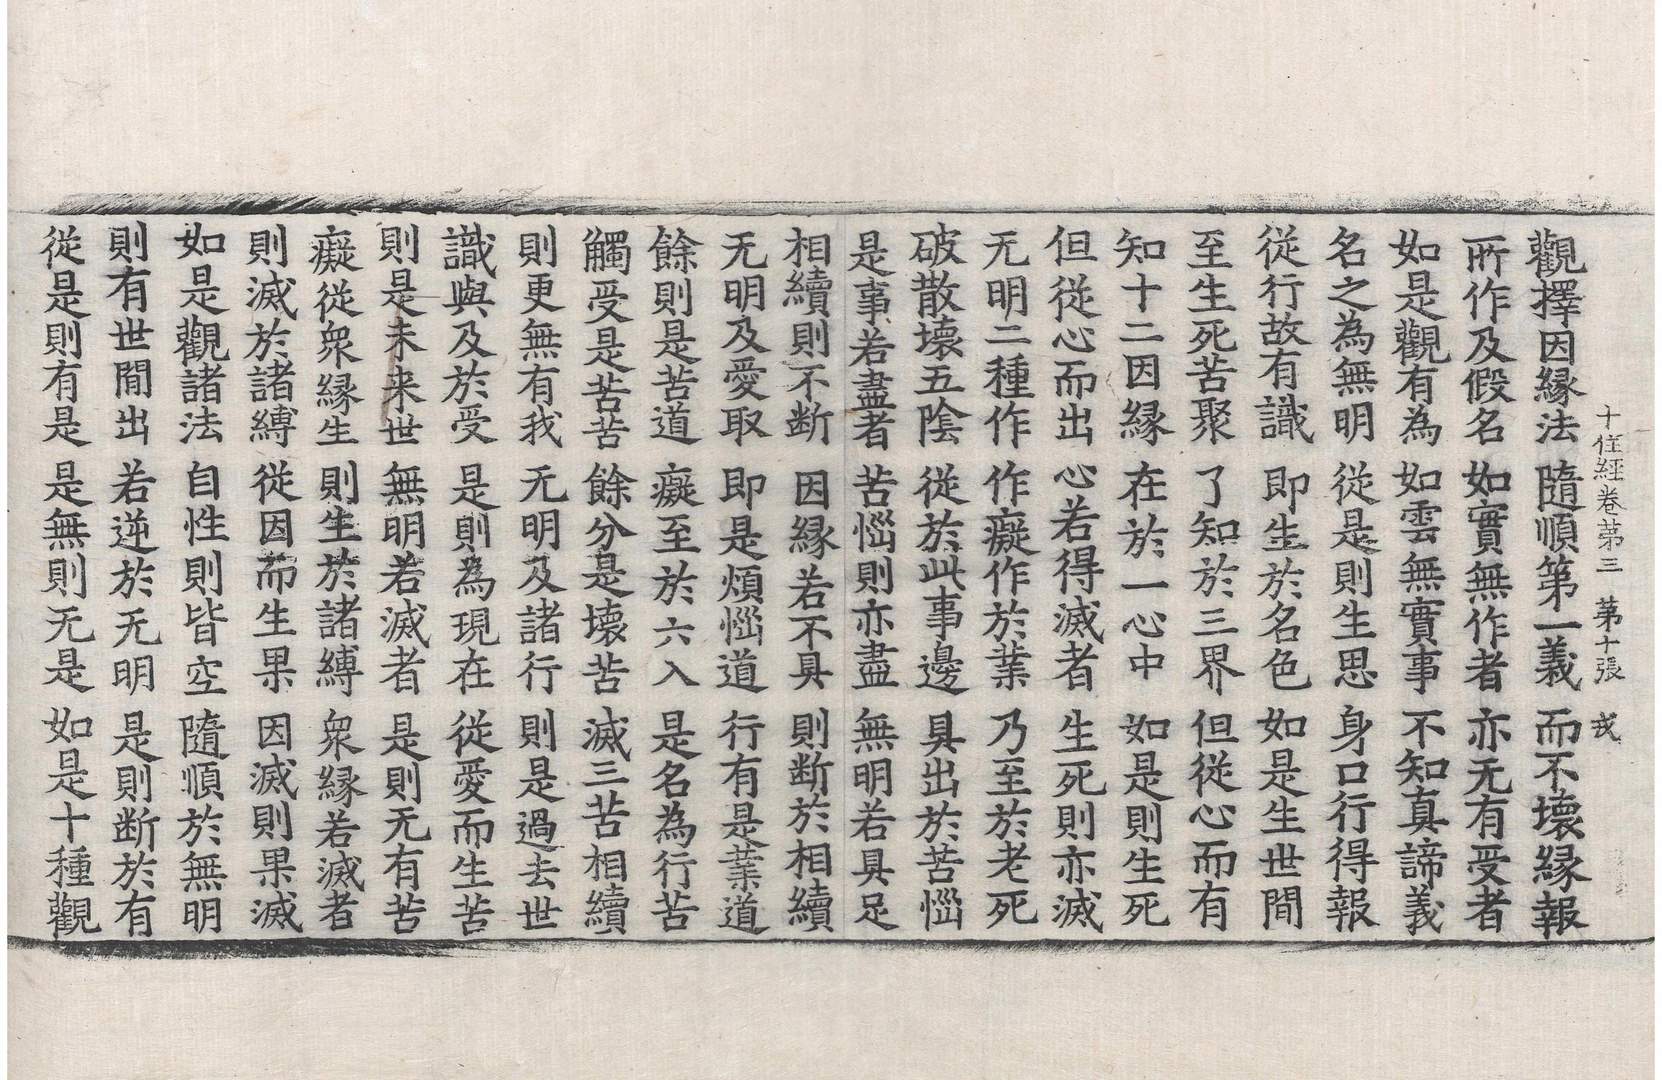 十住經卷第三　第十張　戎
觀擇因縁法　隨順第一義　而不壞縁報
所作及假名　如實無作者　亦无有受者
如是觀有為　如雲無實事　不知真諦義
名之為無明　從是則生思　身口行得報
從行故有識　即生於名色　如是生世間
至生死苦聚　了知於三界　但從心而有
知十二因縁　在於一心中　如是則生死
但從心而出　心若得滅者　生死則亦滅
无明二種作　作癡作於業　乃至於老死
破散壞五陰　從於此事邊　具出於苦惱
是事若盡者　苦惱則亦盡　無明若具足
相續則不断　因縁若不具　則断於相續
无明及愛取　即是煩惱道　行有是業道
餘則是苦道　癡至於六入　是名為行苦
觸受是苦苦　餘分是壞苦　滅三苦相續
則更無有我　无明及諸行　則是過去世
識與及於受　是則為現在　從愛而生苦
則是未来世　無明若滅者　是則无有苦
癡從衆縁生　則生於諸縛　衆縁若滅者
則滅於諸縛　從因而生果　因滅則果滅
如是觀諸法　自性則皆空　隨順於無明
則有世間出　若逆於无明　是則断於有
從是則有是　是無則无是　如是十種觀